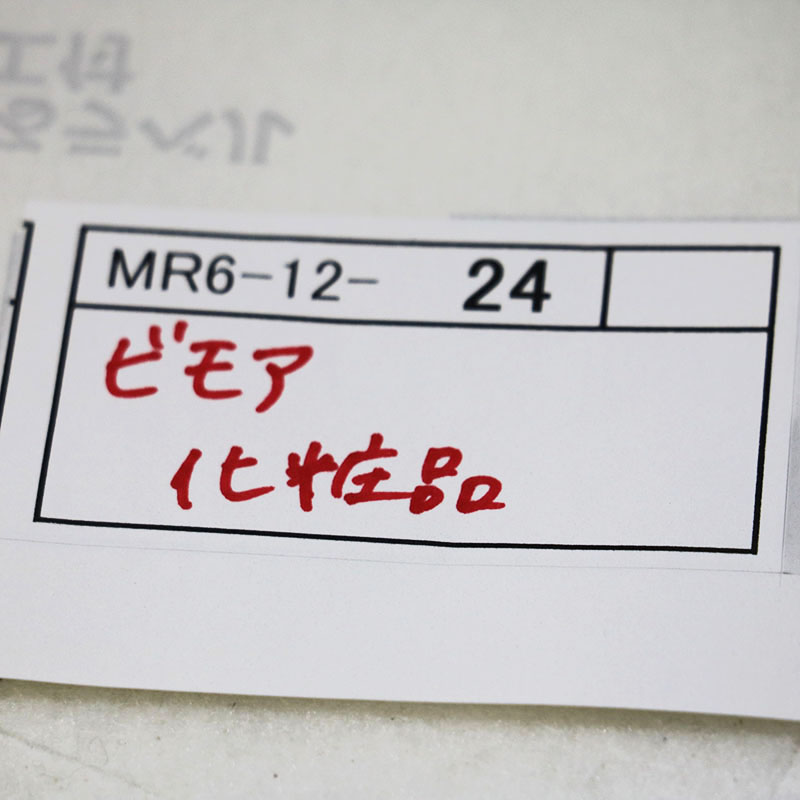 MR6-12- 24
ビモア
化粧品